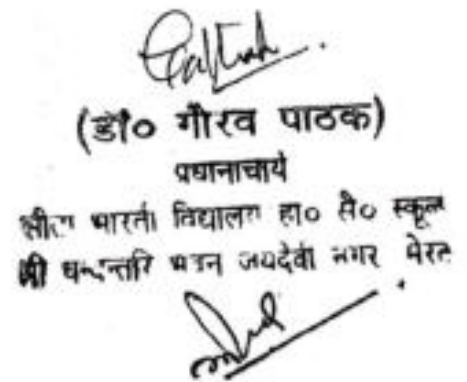 (डॉ० गौरव पाठक)
प्रधानाचार्य
भारती विद्यालय हा० सै० स्कूल
श्री धन्वन्तरि भवन जयदेवी नगर मेरठ